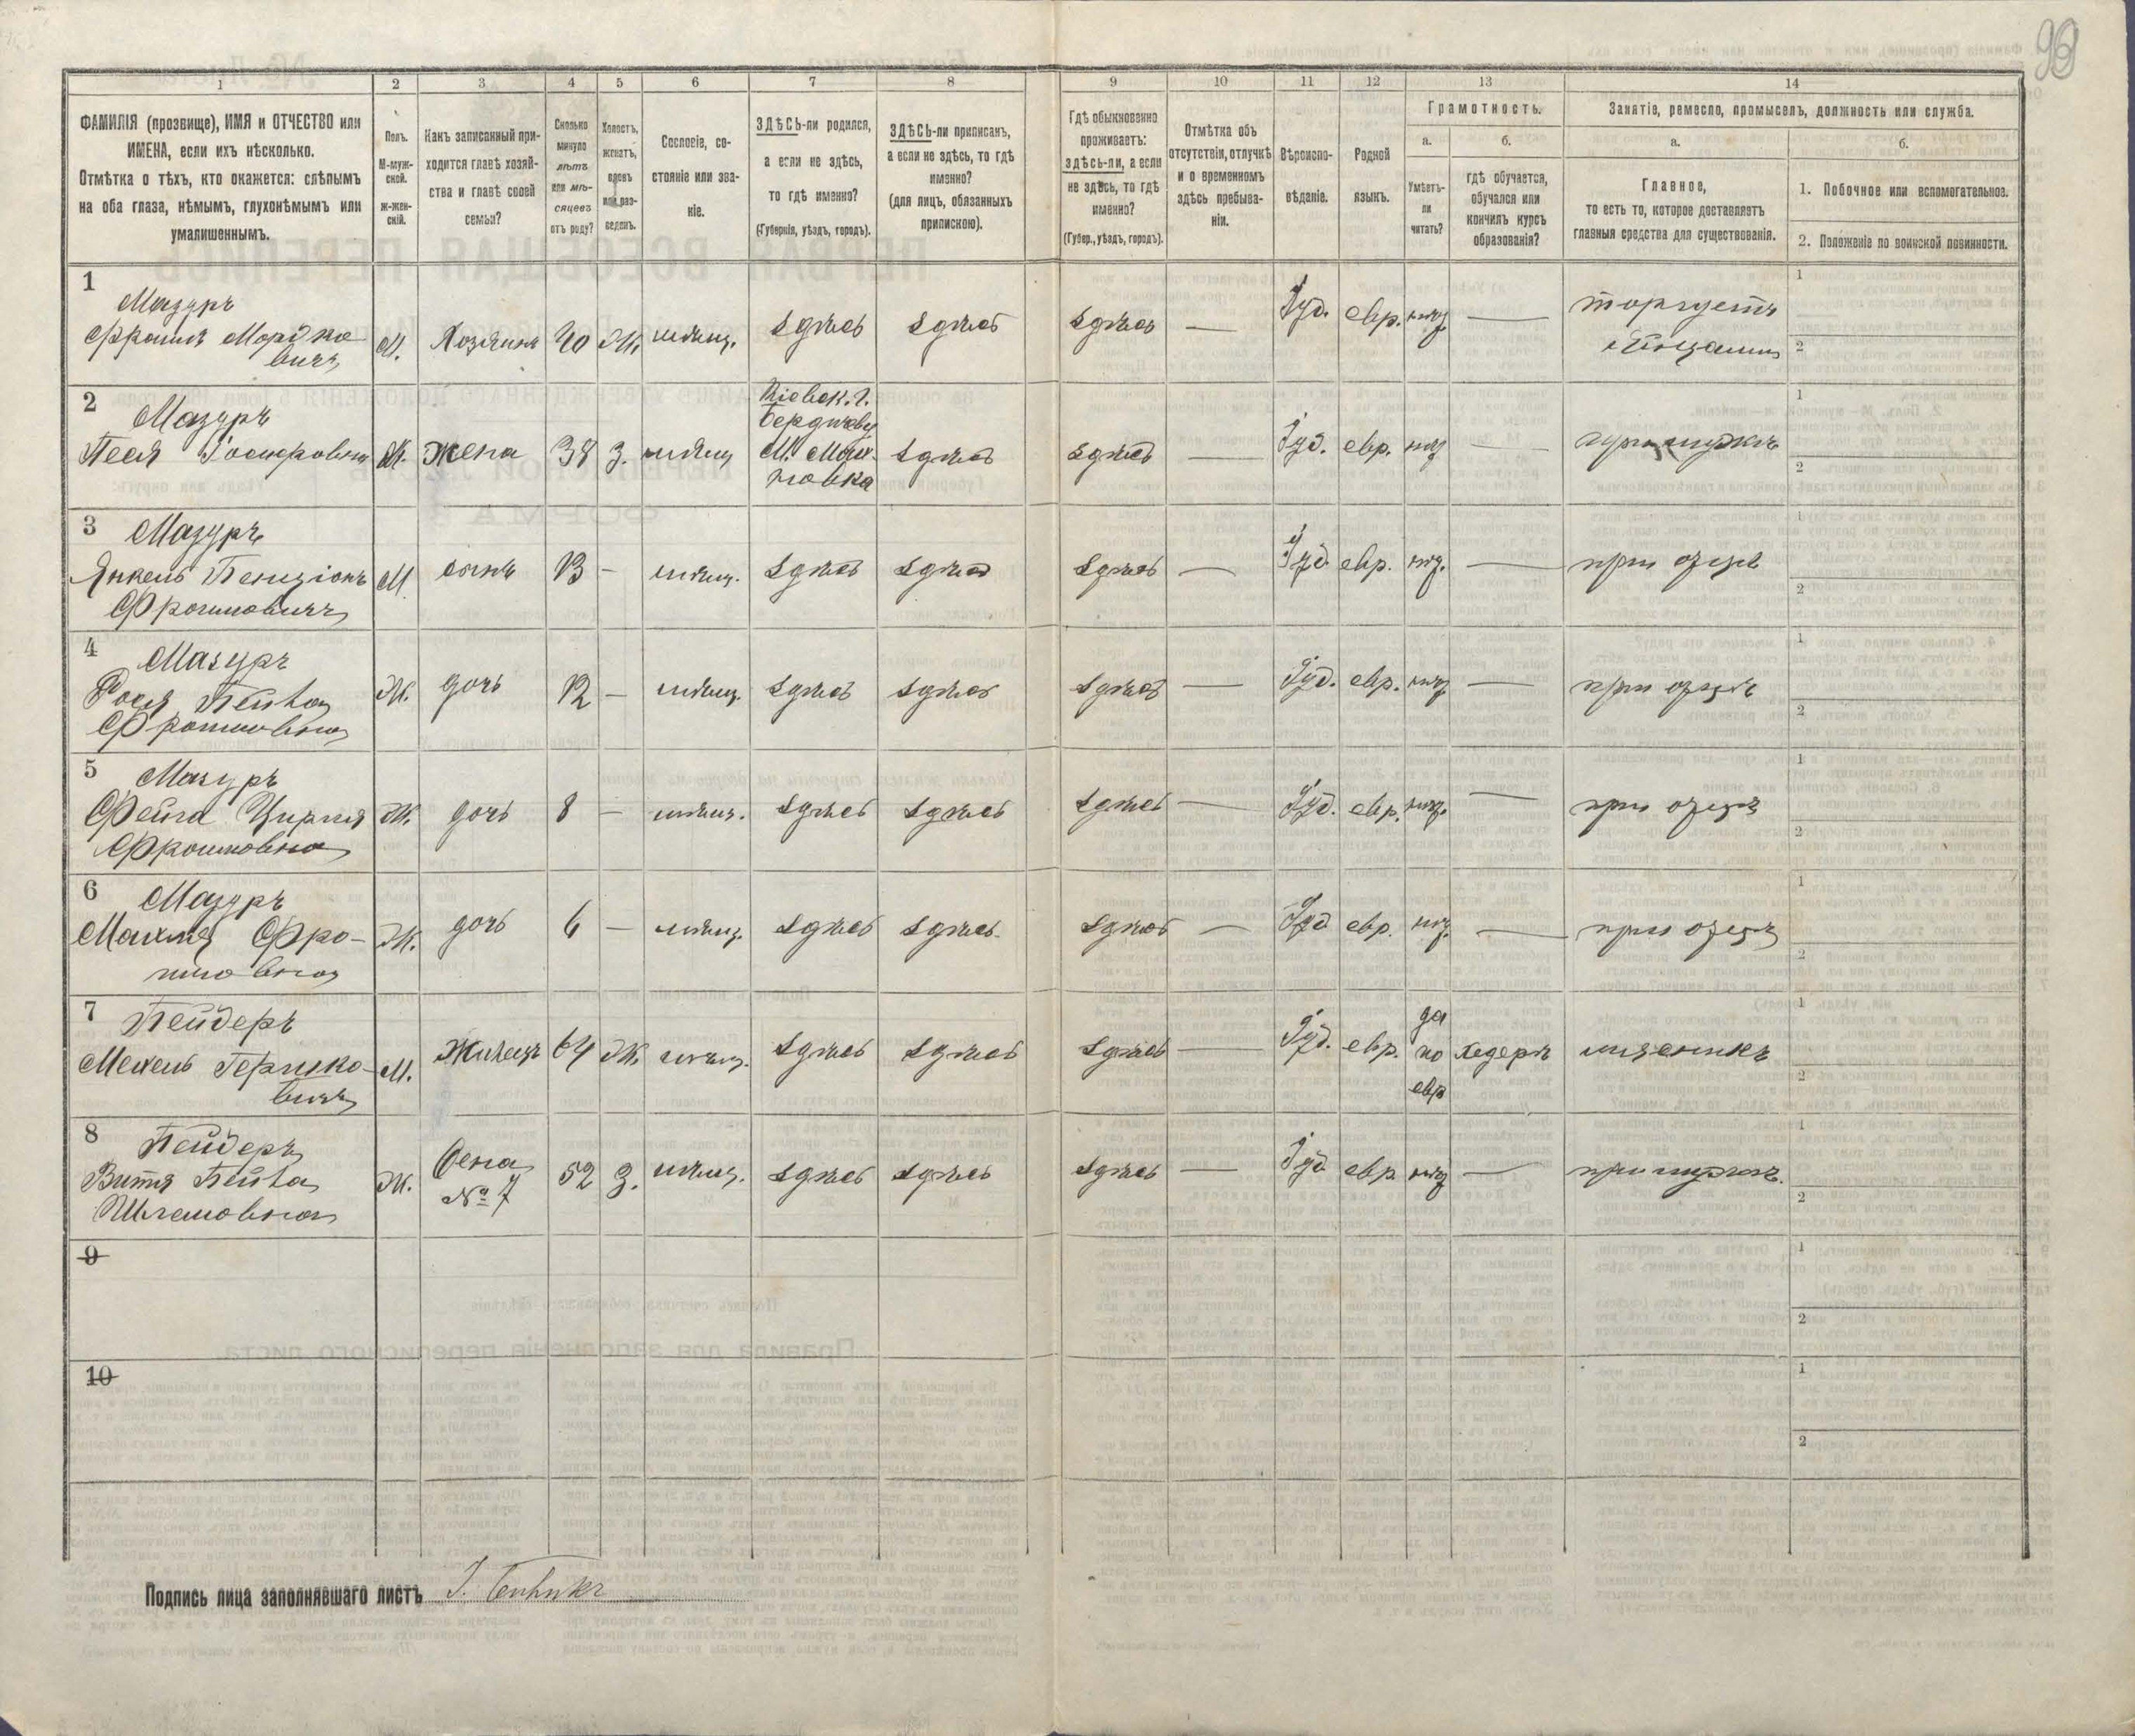 99
1 2 3 4 5 6 7 8 9 10 11 12 13 14
ФАМИЛІЯ (прозвище), ИМЯ и ОТЧЕСТВО или
ИМЕНА, если ихъ нѣсколько.
Отмѣтка о тѣхъ, кто окажется: слѣпымъ
на оба глаза, нѣмымъ, глухонѣмымъ или
умалишеннымъ.
Полъ.
М-муж-
ской.
Ж-жен-
скій.
Какъ записанный при-
ходится главѣ хозяй-
ства и главѣ своей
семьи?
Сколько
минуло
лѣтъ
или мѣ-
сяцевъ
отъ роду?
Холостъ,
женатъ,
вдовъ
или раз-
веденъ.
Сословіе, со-
стояніе или зва-
ніе.
ЗДѢСЬ-ли родился,
а если не здѣсь,
то гдѣ именно?
(Губернія, уѣздъ, городъ).
ЗДѢСЬ-ли приписанъ,
а если не здѣсь, то гдѣ
именно?
(для лицъ, обязанныхъ
припискою).
Гдѣ обыкновенно
проживаетъ:
здѣсь-ли, а если
не здѣсь, то гдѣ
именно?
(Губер., уѣздъ, городъ).
Отмѣтка объ
отсутствіи, отлучкѣ
и о временномъ
здѣсь пребыва-
ніи.
Вѣроиспо-
вѣданіе.
Родной
языкъ.
Грамотность.
а.
Умѣетъ-
ли
читать?
б.
гдѣ обучается,
обучался или
кончилъ курсъ
образованія?
Занятіе, ремесло, промыселъ, должность или служба.
а.
Главное,
то есть то, которое доставляетъ
главныя средства для существованія.
б.
1. Побочное или вспомогательное.
2. Положеніе по воинской повинности.
1
Мазуръ
Фроимъ Мордко
вичъ
М. Хозяинъ 40 Ж. мѣщ. здѣсь здѣсь здѣсь — Іуд. евр. нѣт —
торгуетъ
1
2
2
Мазуръ
Песя Іосифовна
Ж. жена 38 З. мѣщ
Кіевск. г.
Бердичев у
М.
здѣсь здѣсь — Іуд. евр. нѣт — при мужѣ
1
2
3
Мазуръ
Янкель Бенціонъ
Фроимовичъ
М сынъ 13 — мѣщ. здѣсь здѣсь здѣсь — Іуд евр. нѣт. — при отцѣ
1
2
4
Мазуръ
Рося Лейва
Фроимовна
Ж. дочь 12 — мѣщ. здѣсь здѣсь здѣсь — Іуд. евр. нѣт — при отцѣ
1
2
5
Мазуръ
Фейга Цирля
Фроимовна
Ж. дочь 8 — мѣщ. здѣсь здѣсь здѣсь — Іуд. евр. нѣт. — при отцѣ
1
2
6
Мазуръ
Махля Фро-
имовна
Ж. дочь 6 — мѣщ. здѣсь здѣсь здѣсь — Іуд евр. нѣт. — при отцѣ
1
2
7
Лейдеръ
Мехель Гершко-
вичъ
М. Жилецъ 64 Ж. мѣщ. здѣсь здѣсь здѣсь — Іуд. евр.
да
по
евр
хедеръ
1
2
8
Лейдеръ
Витя Лейва
Шлемовна
Ж.
Жена
№ 7
52 З. мѣщ. здѣсь здѣсь здѣсь — Іуд евр. нѣт — при мужѣ.
1
2
9
1
2
10
1
2
Подпись лица заполнявшаго листъ